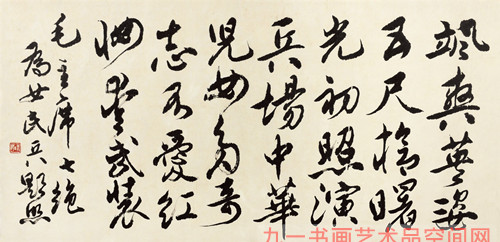 颯爽英姿
五尺槍曙
光初照演
兵場中華
兒女多奇
志不愛紅
妝愛武裝
毛主席七絕
為女民兵題照
九一书画艺术品空间网